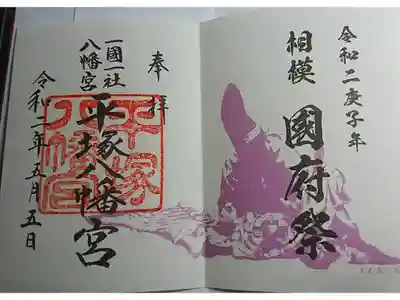 令和二庚子年
相模
國府祭
奉拝
一國一社
八幡宮
平塚八幡宮
平塚八幡宮
令和二年五月五日